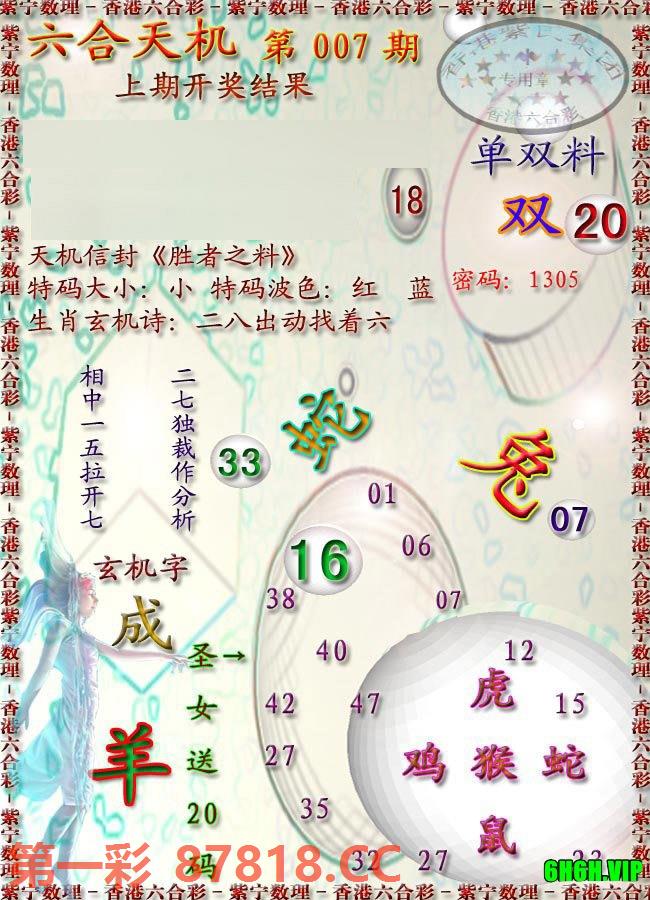 紫宁数理－香港六合彩－紫宁数理－香港六合彩－紫宁数理－香港六合彩
六合天机 第 007 期
上期开奖结果
专用章
香港六合彩
单双料
18
双 20
天机信封《胜者之料》
特码大小：小 特码波色：红 蓝
密码：1305
生肖玄机诗：二八出动找着六
相中一五拉开七
二七独裁作分析
33
蛇
兔
07
01
16
06
玄机字
38
07
成
圣→
女
送
20
码
40
12
虎
42
47
15
羊
27
鸡 猴 蛇
35
鼠
32
27
第一彩 87818.CC
6H6H.VIP
紫宁数理－香港六合彩－紫宁数理－香港六合彩－紫宁数理－香港六合彩